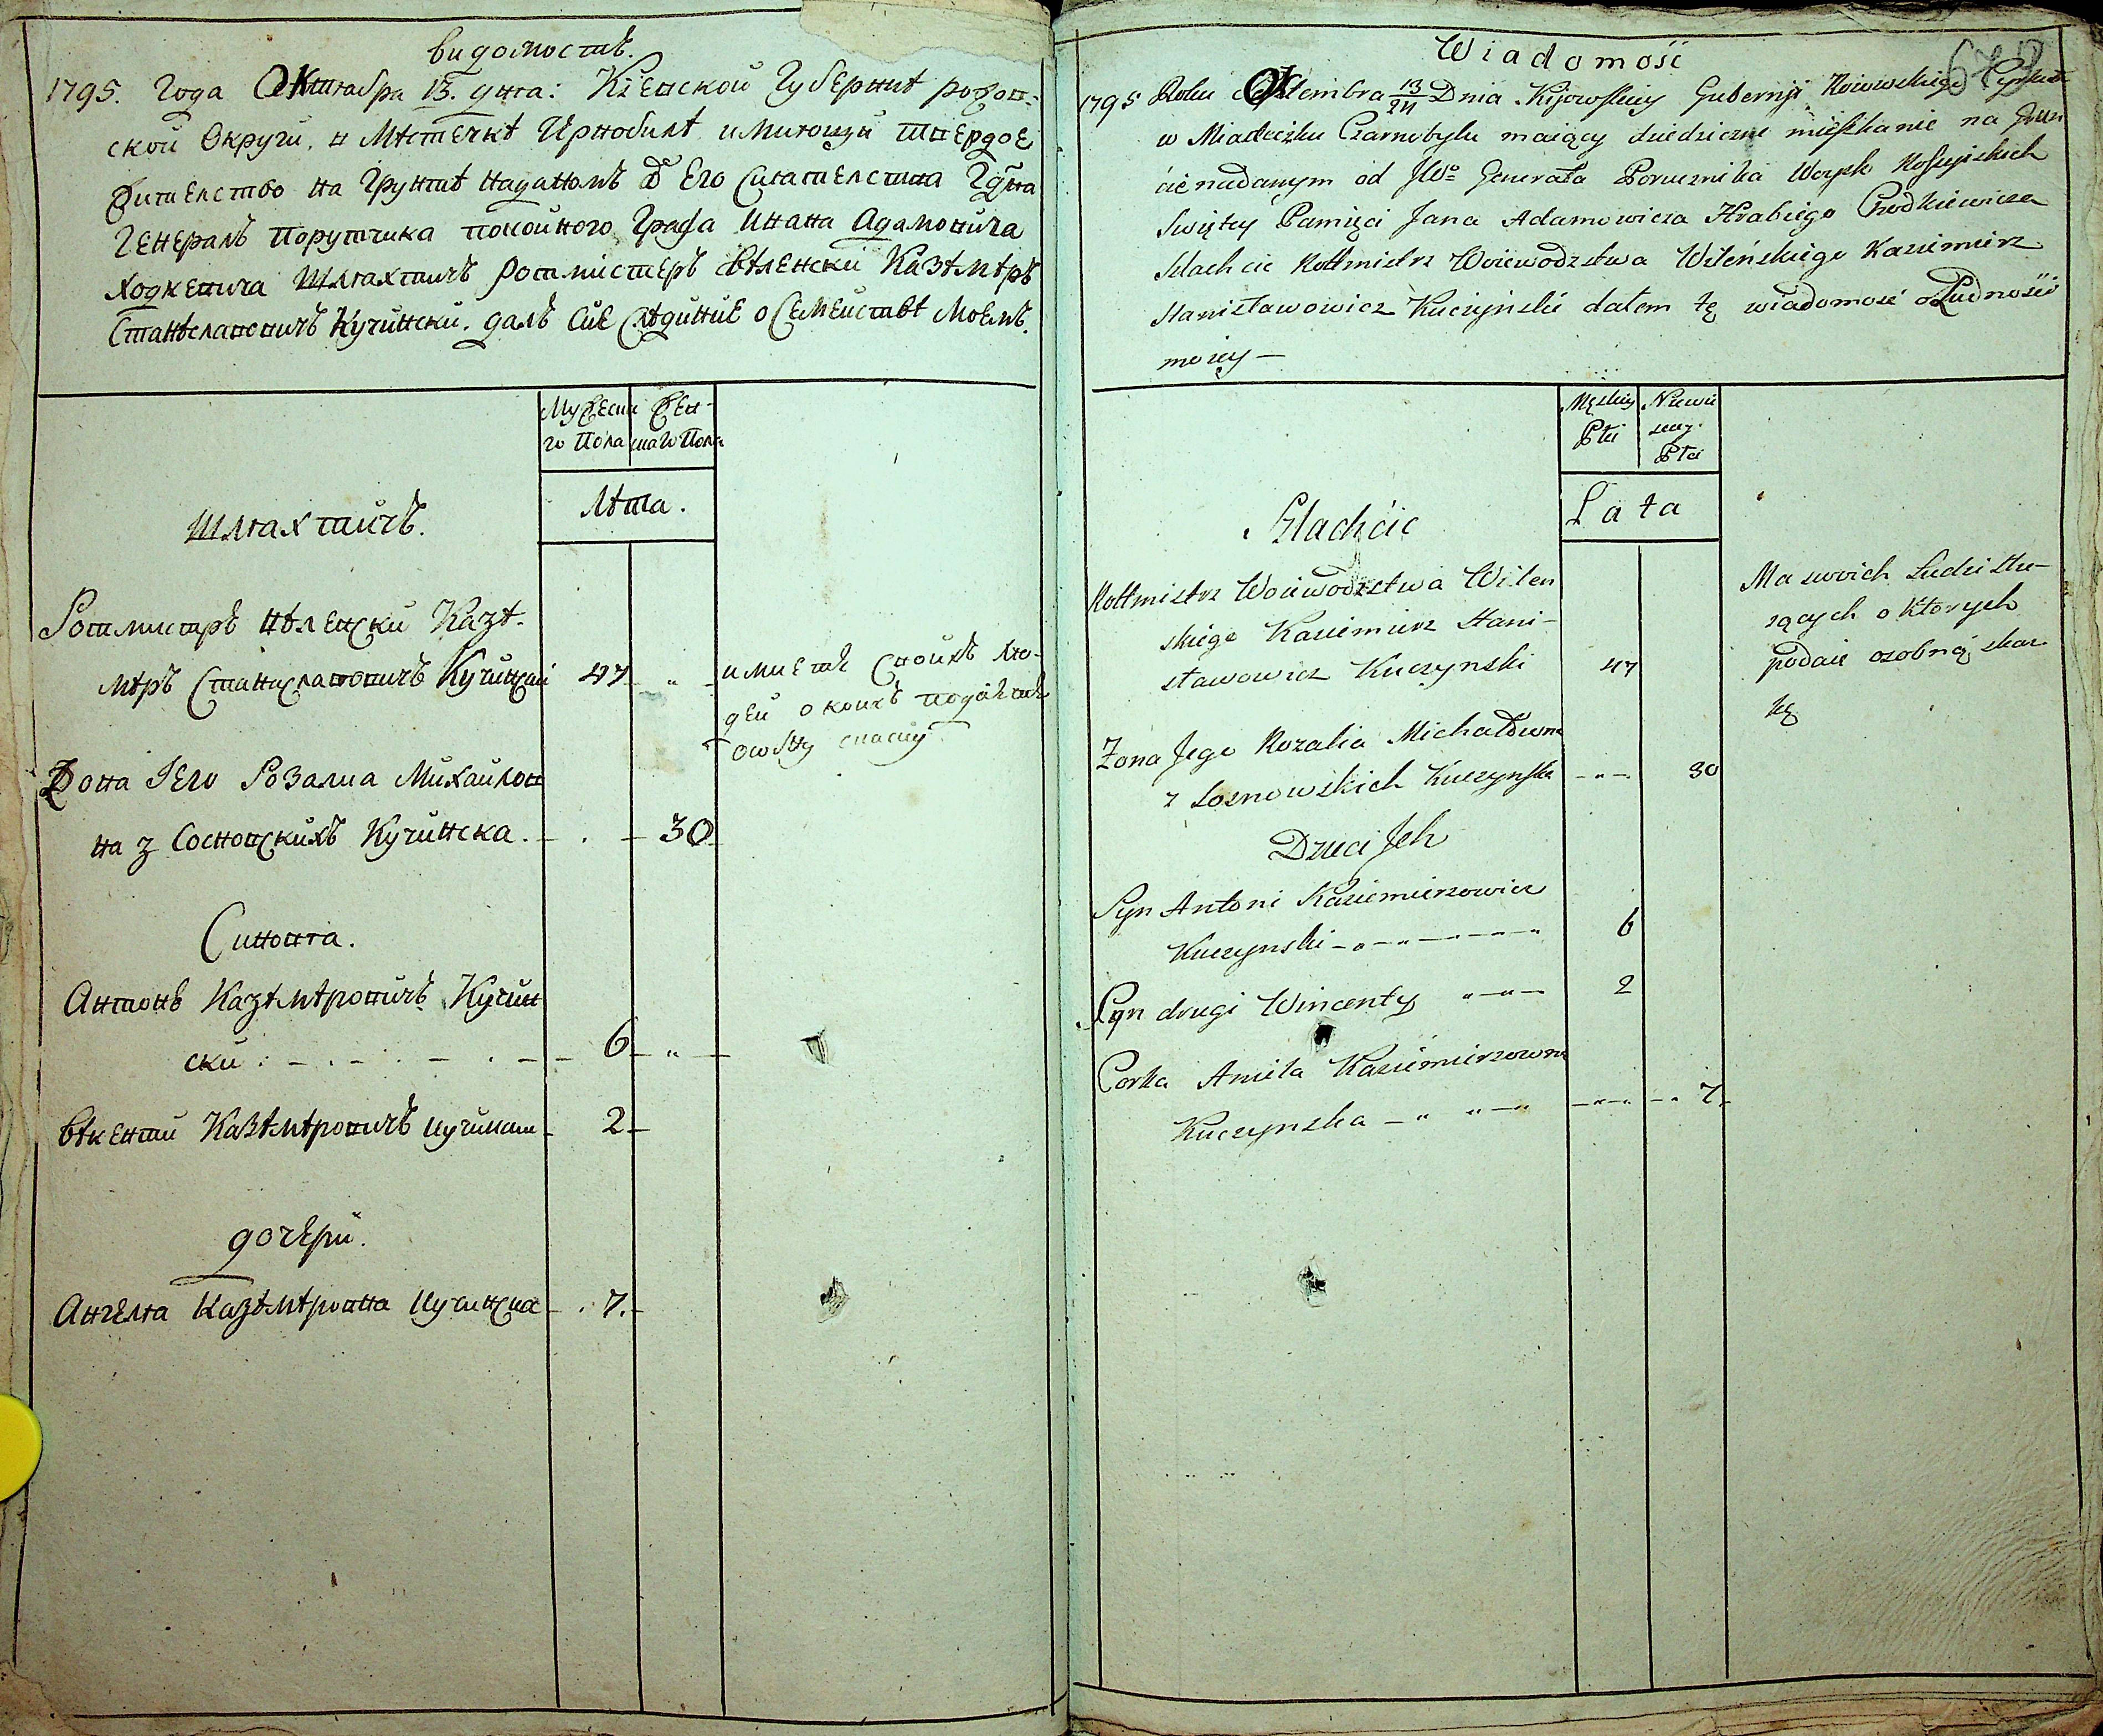 видомость.
1795. Года Октлабра 13. днга: Кіевской Губерниѣ
ской Округи, в Мѣстечкѣ Чрнобилѣ имиющи твердое
Жителство на Грунтѣ наданомъ ѿ Его Сиятелства Гдна
Генералъ Порутчика покойного Графа Ивана Адамовича
Ходкевича Шляхтичъ Ротмистеръ вѣленски Казѣмѣръ
Станѣславовичъ Кучински. далъ Сие Свѣдиние о Семействѣ Моемъ.
Мужеска Жен-
го Пола скаго Пола
Лѣта.
Шляхтичъ.
Ротмистръ Вѣленски Казѣ-
мѣръ Станиславовичъ Кучински 47 "
имиеть Своихъ лю-
дей о коихъ подаеть
особну скаску
Жона Его Розалиа Михайлов
на з Сосновскихъ Кучинска. 30
Синовя.
Антонъ Казѣмѣровичъ Кучин
ски: 6 "
Вѣкенти Казѣмѣровичъ Кучински 2
дочери.
Ангеля Казѣмѣровна Кучинска 7.
Wiadomość
673
1795 Roku Oktembra 13/24 Dnia Kijowskiey Gubernji
w Miasteczku Czarnobylu maiący dziedziczne mieszkanie na Grun
cie nadanym od JWo Generała Porucznika Woysk Rossyiskich
Swiętey Pamięci Jana Adamowicza Hrabiego Chodkiewicza
Szlachcic Rottmistrz Woiewodztwa Wileńskiego Kazimierz
Stanisławowicz Kuczynski dałem tę wiadomość o Ludności
moiey —
Męskiey Niewie
Płci sciey.
Płci
Lata
Szlachcic
Rottmistrz Woiewodztwa Wilen
skiego Kazimierz Stani-
sławowicz Kuczynski 47
Ma swoich Ludzi słu-
żących o ktorych
podaie osobną skaz
kę
Zona Jego Rozalia Michałowna
z Sosnowskich Kuczynska - " - 30
Dzieci Jch
Syn Antoni Kazimierzowicz
Kuczynski - " - " - - - - " 6
Syn drugi Wincenty " - " - 2
Corka Aniela Kazimierzowna
Kuczynska - " " - " - " - - " 7